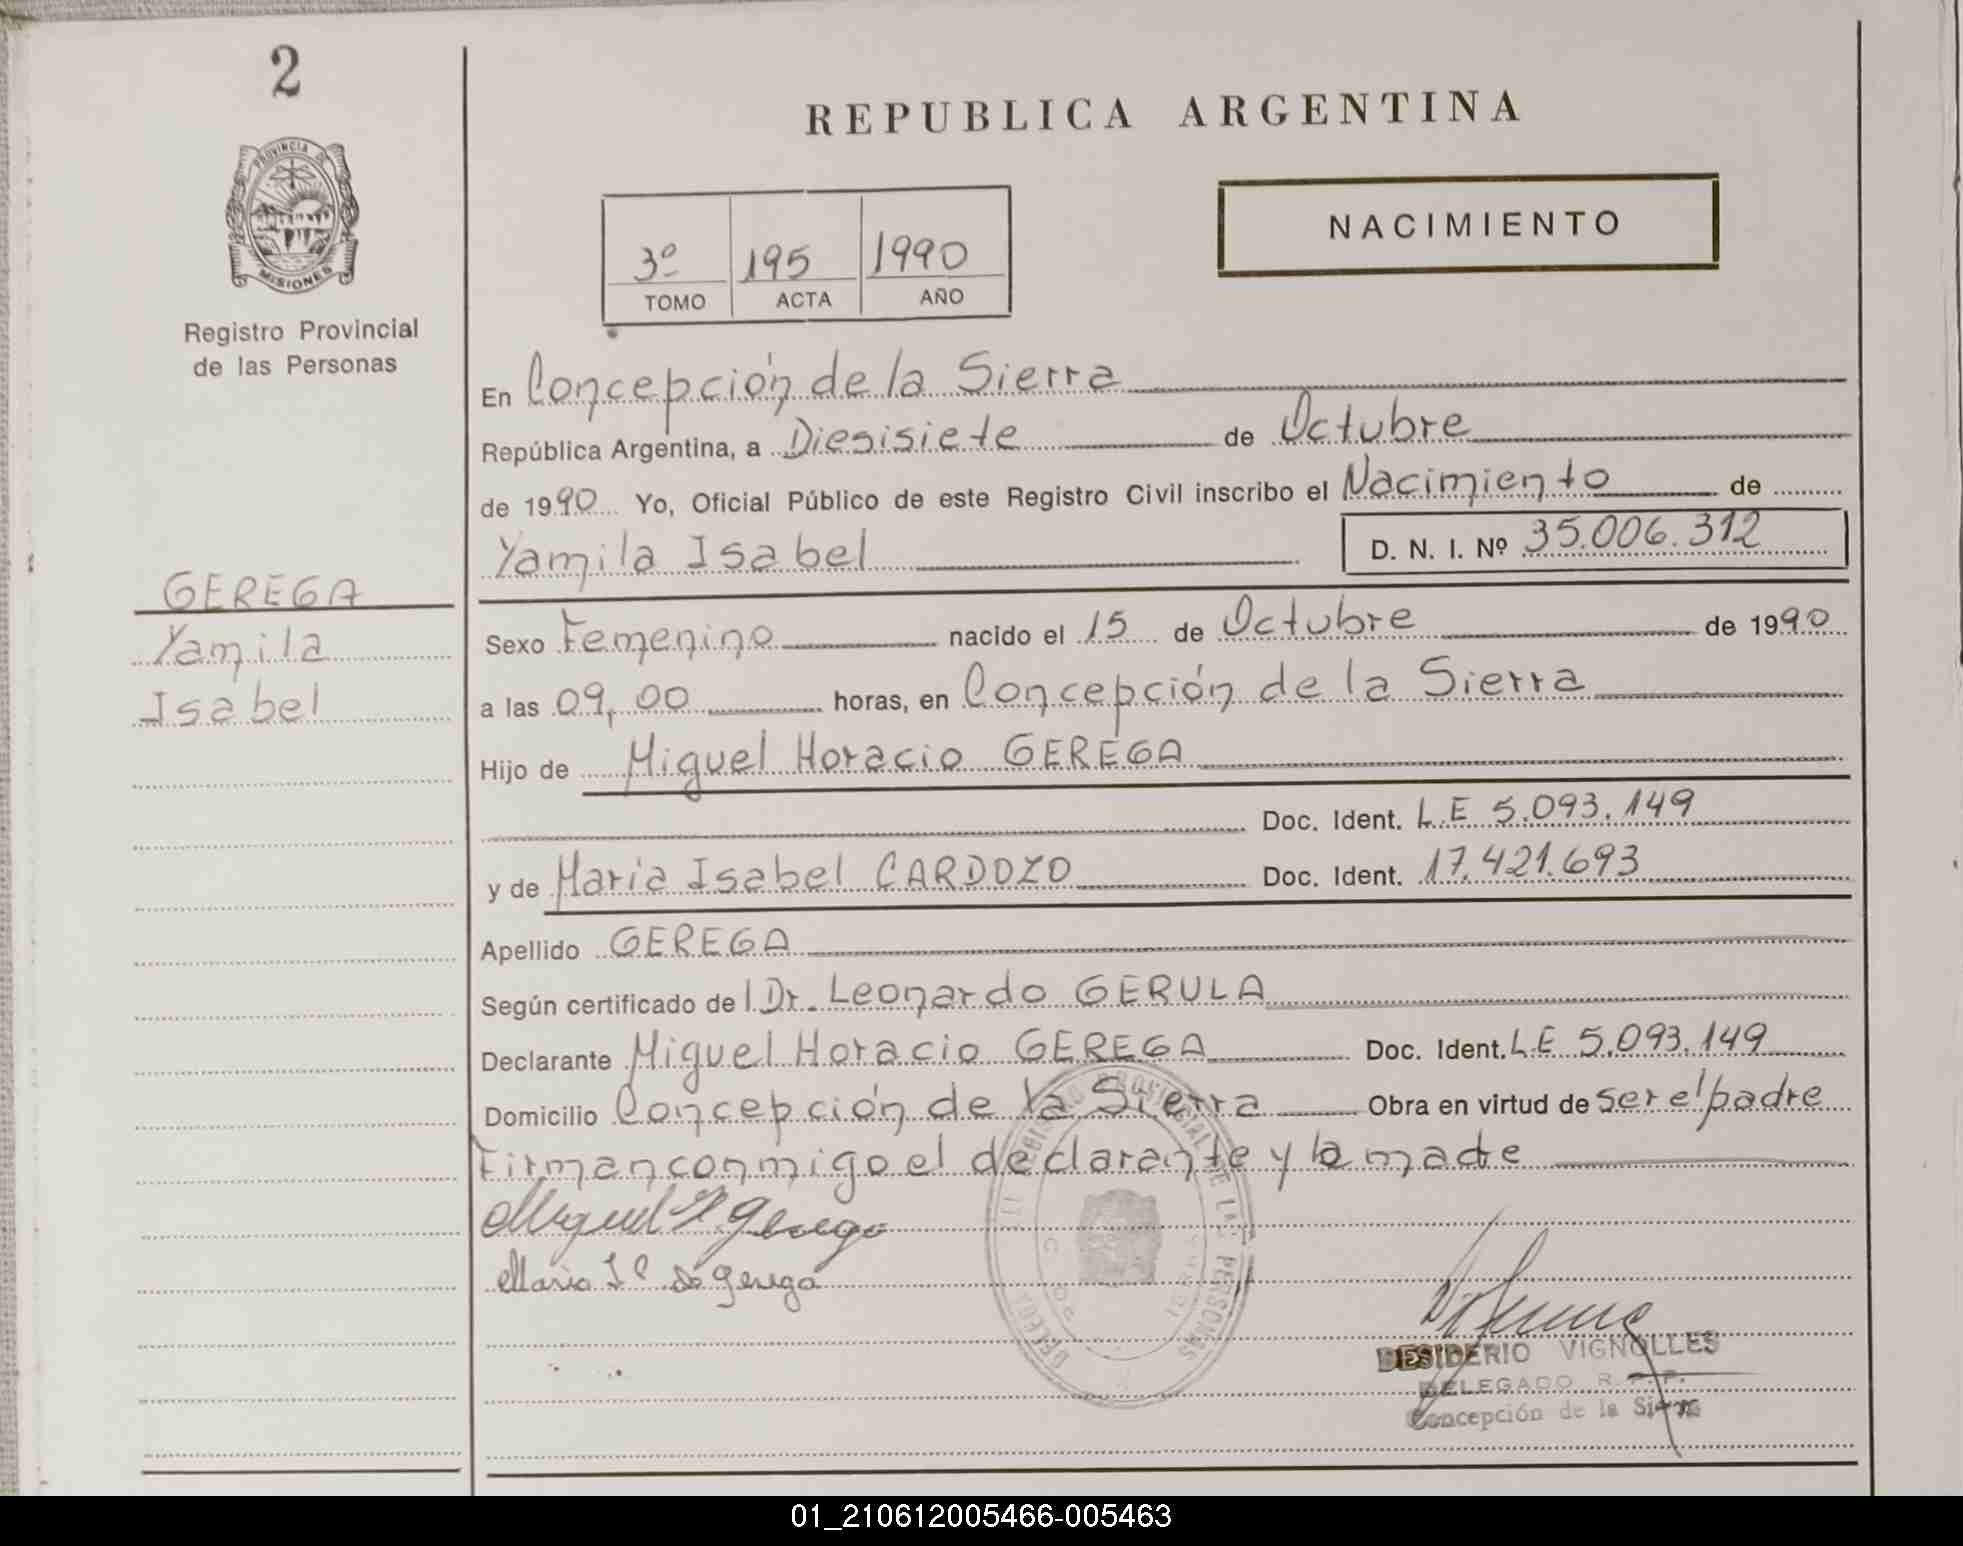 2
PROVINCIA DE
MISIONES
Registro Provincial
de las Personas
GEREGA
Yamila
Isabel
REPUBLICA ARGENTINA
3º 195 1990
TOMO ACTA AÑO
NACIMIENTO
En Concepción de la Sierra
República Argentina, a Diesisiete de Octubre
de 1990 Yo, Oficial Público de este Registro Civil inscribo el Nacimiento de
Yamila Isabel D. N. I. Nº 35.006.312
Sexo Femenino nacido el 15 de Octubre de 1990
a las 09,00 horas, en Concepción de la Sierra
Hijo de Miguel Horacio GEREGA
Doc. Ident. L.E 5.093.149
y de Maria Isabel CARDOZO Doc. Ident. 17.421.693
Apellido GEREGA
Según certificado del Dr. Leonardo GERULA
Declarante Miguel Horacio GEREGA Doc. Ident. L.E 5.093.149
Domicilio Concepción de la Sierra Obra en virtud de ser el padre
Firman conmigo el declarante y la madre
Miguel H Gerega
Maria I C de Gerega
DESIDERIO VIGNOLLES
DELEGADO R. P. P.
Concepción de la Sierra
01_210612005466-005463